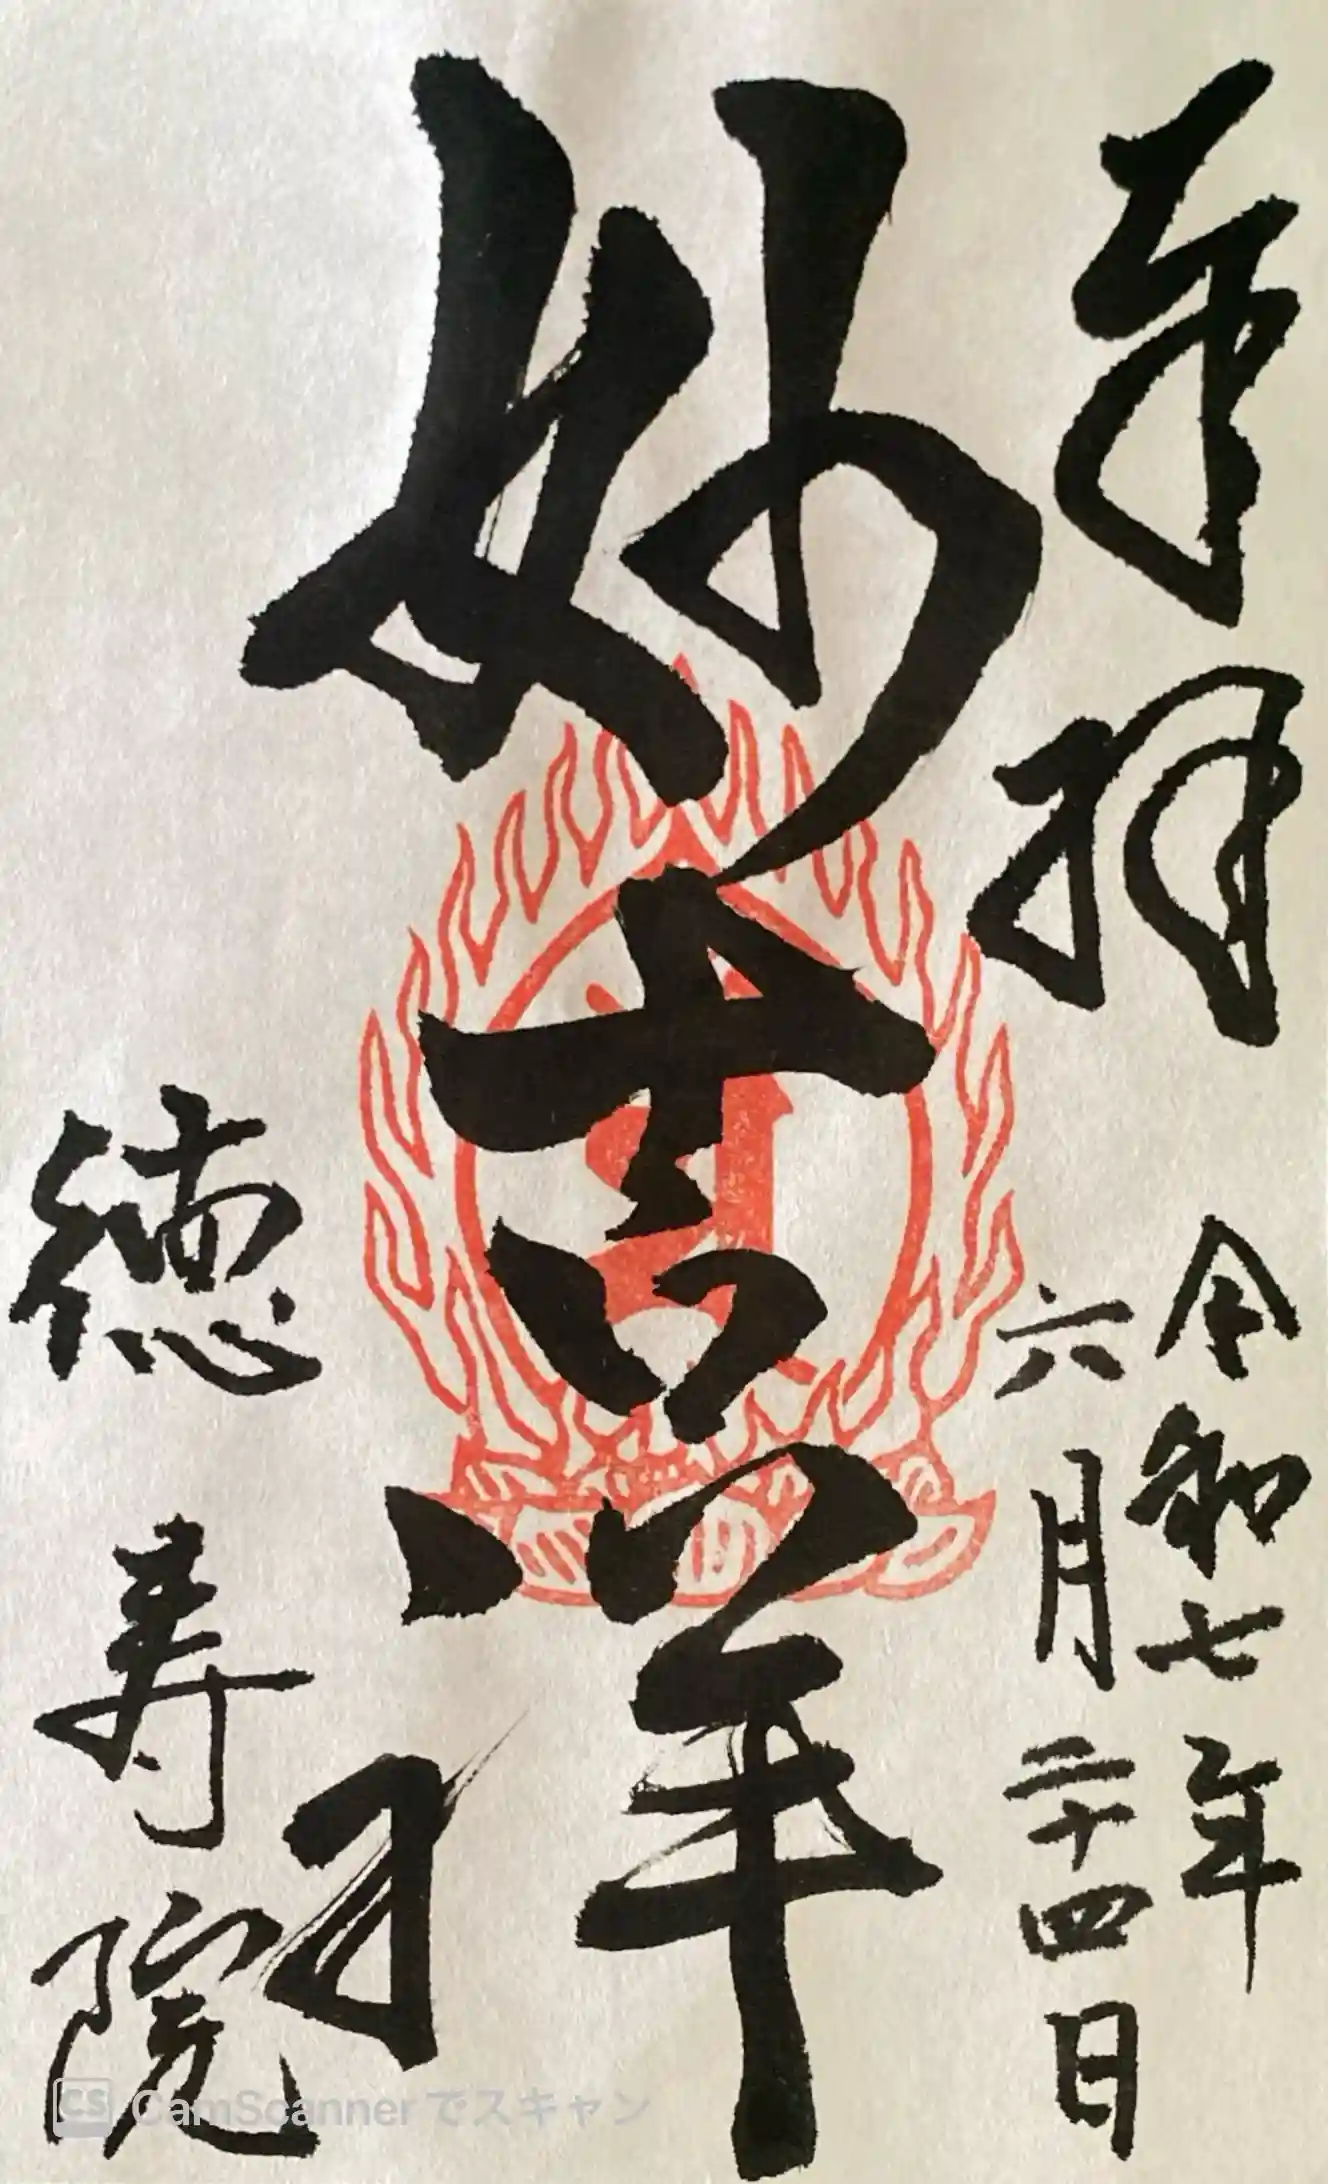 奉拝
令和七年
六月二十四日
妙吉祥
徳寿院
CS CamScannerでスキャン